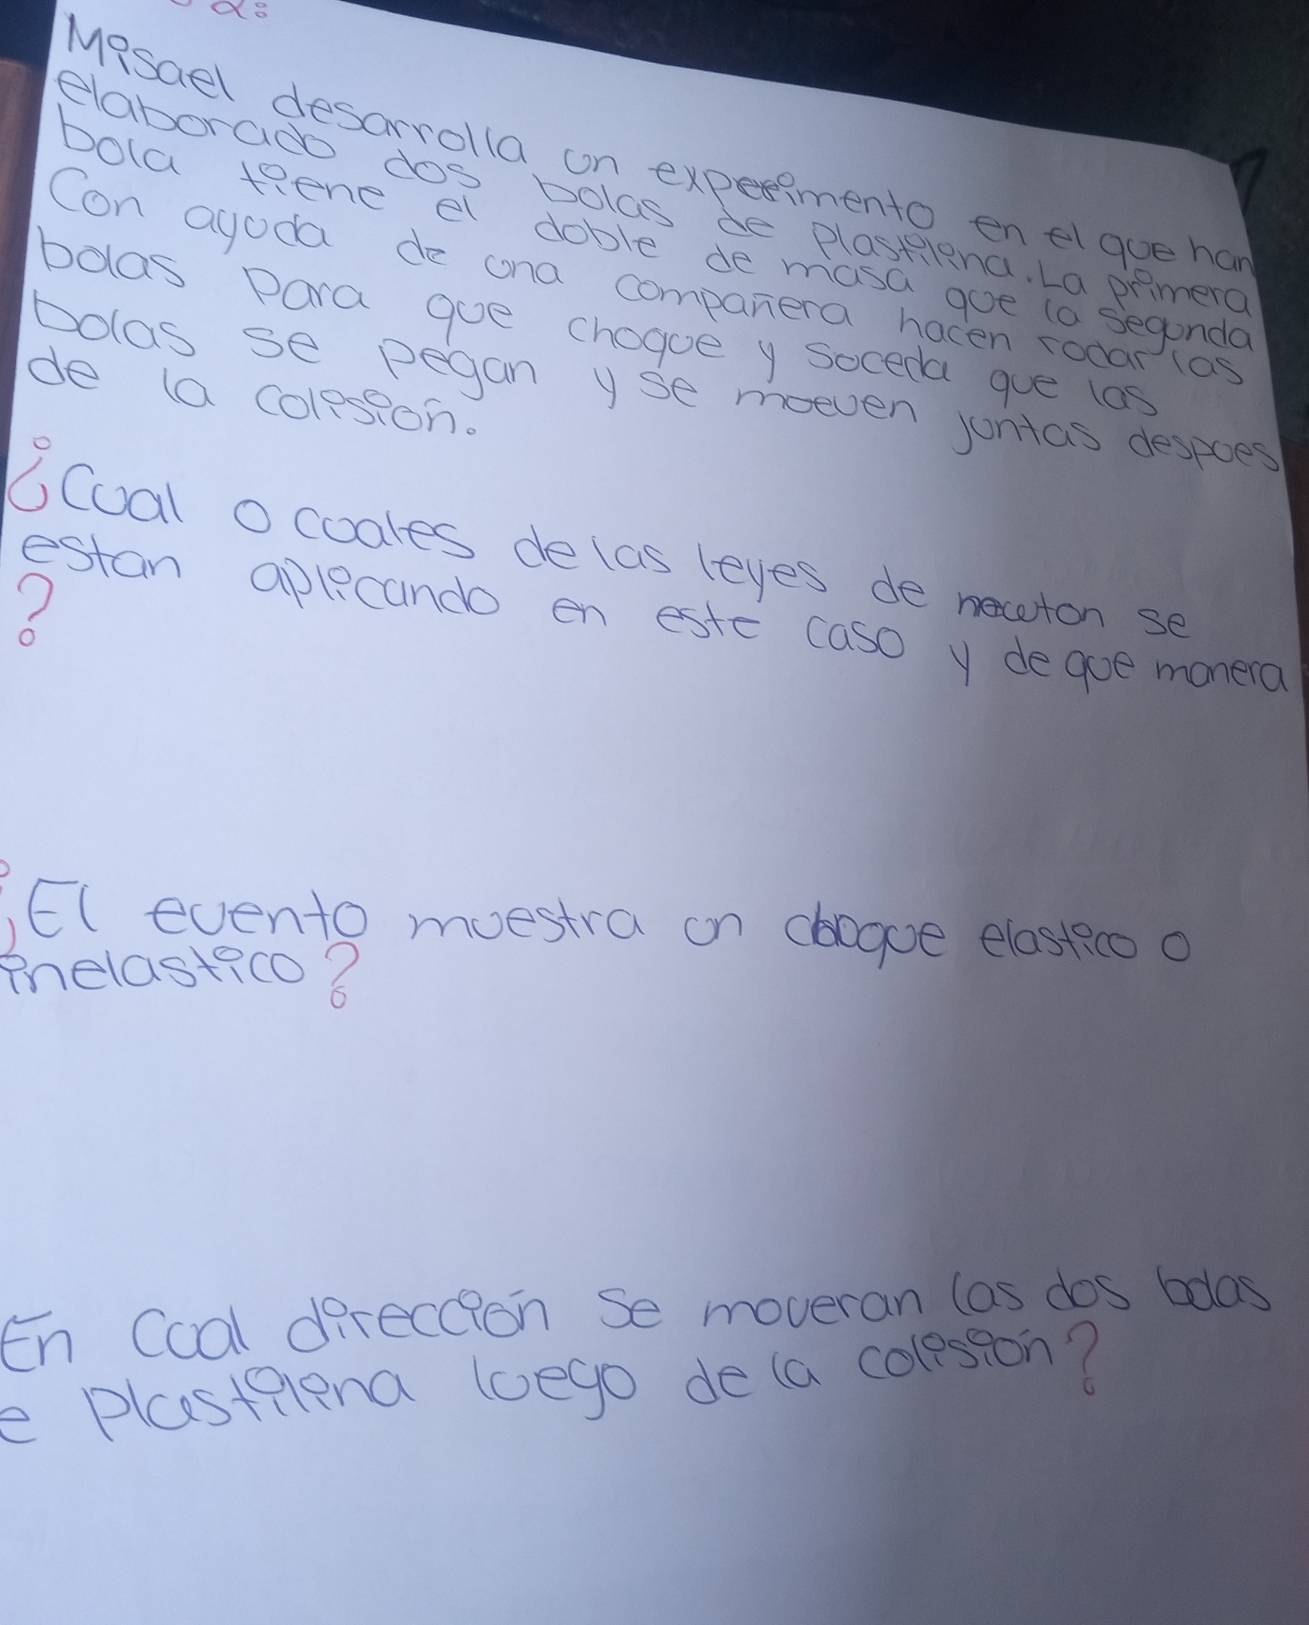 2:
Misael desarrolla un experimento en el que han
elaborado dos bolas de plastilina. La primera
bola tiene el doble de masa que la segunda
Con ayuda de una compañera hacen rodar las
bolas para que choque y suceda que las
bolas se pegan y se mueven juntas despues
de la colision.
¿Cual o cuales de las leyes de newton se
estan aplicando en este caso y de que manera
?
¿El evento muestra un choque elastico o
inelastico?
En Cual dirección se moveran las dos bolas
e plastilina luego de la colision?